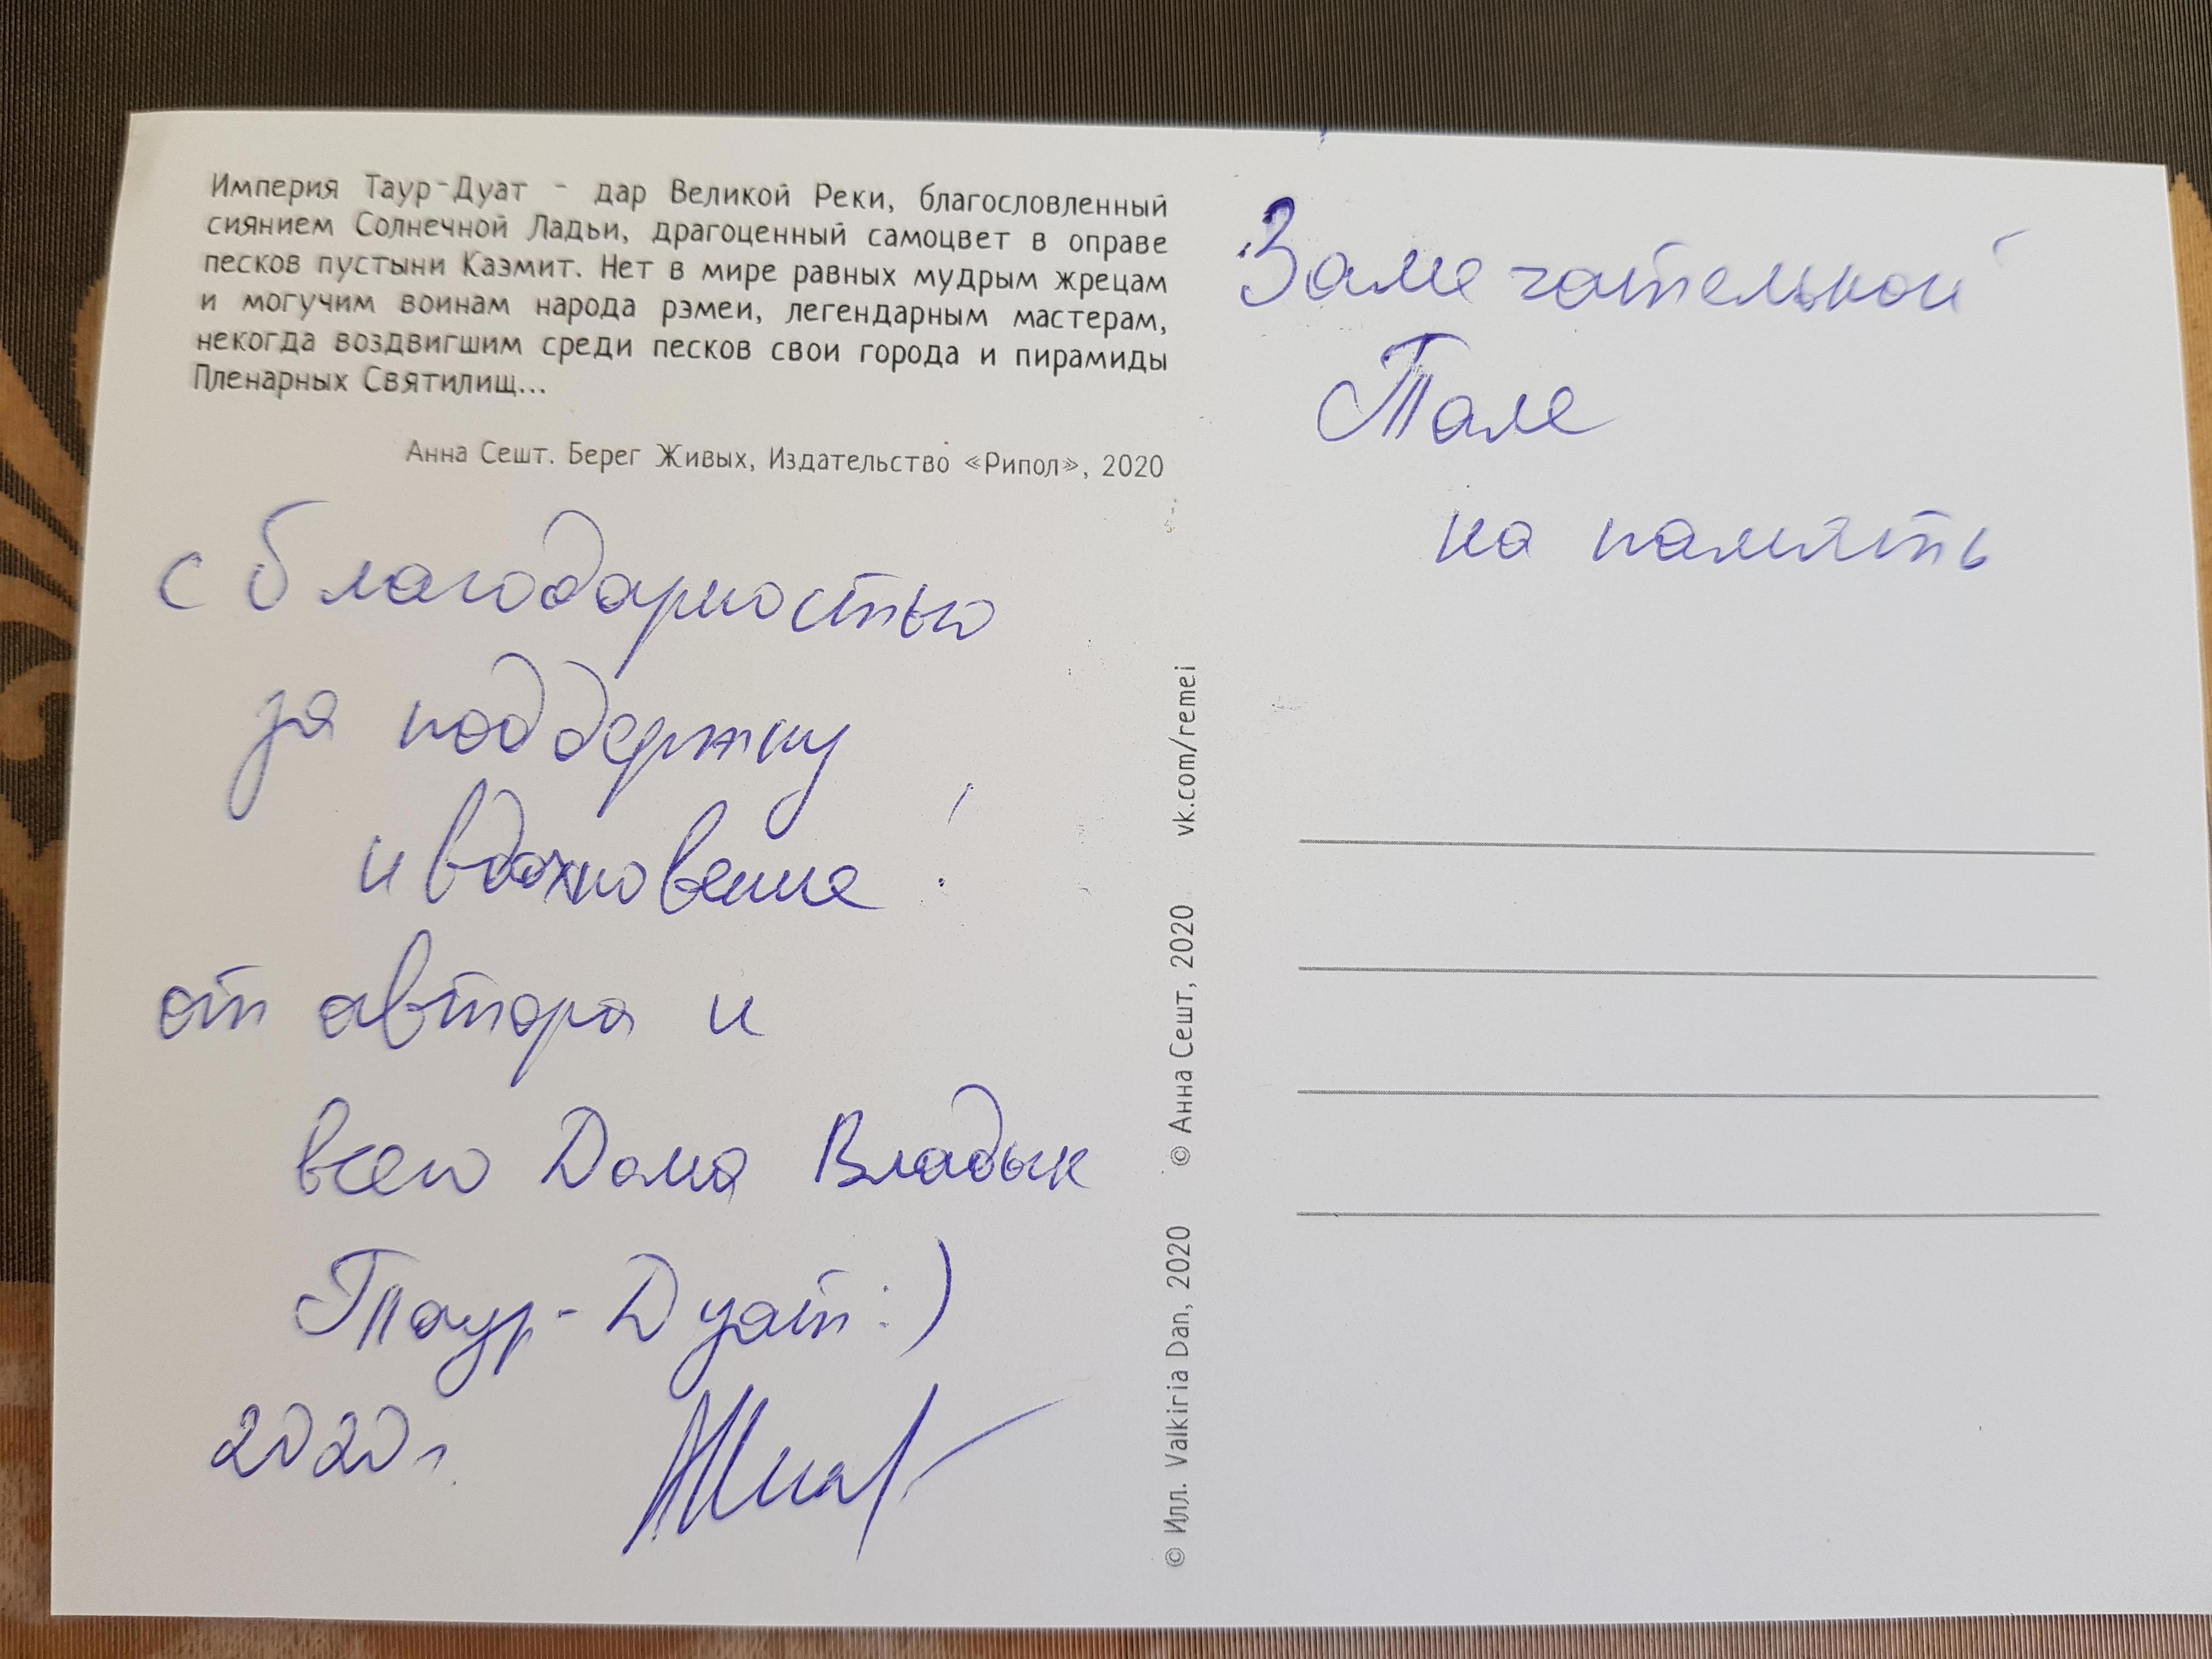 Империя Таур-Дуат - дар Великой Реки, благословленный
сиянием Солнечной Ладьи, драгоценный самоцвет в оправе
песков пустыни Каэмит. Нет в мире равных мудрым жрецам
и могучим воинам народа рэмеи, легендарным мастерам,
некогда воздвигшим среди песков свои города и пирамиды
Пленарных Святилищ...
Анна Сешт. Берег Живых, Издательство «Рипол», 2020
с благодарностью
за поддержку
и вдохновение!
от автора и
всего Дома Владык
Таур-Дуат :)
2020 г.
© Илл. Valkiria Dan, 2020 © Анна Сешт, 2020 vk.com/remei
Замечательной
Тале
на память